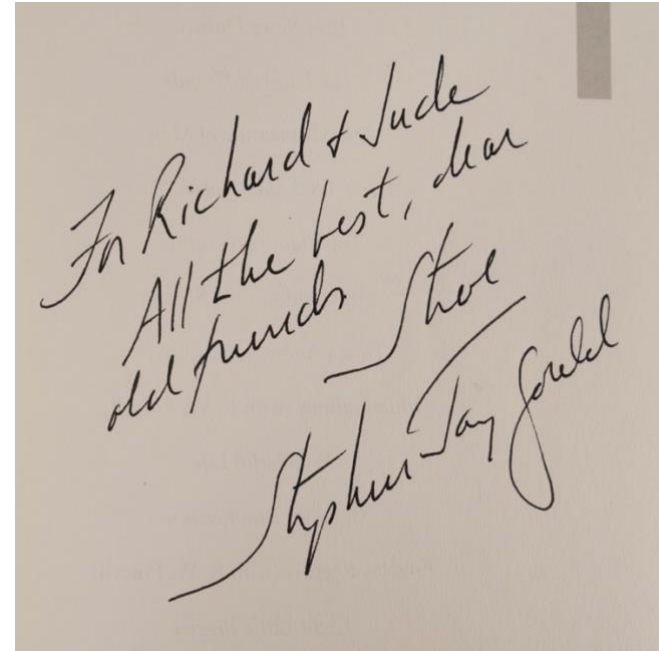 For Richard & Jude
All the best, dear
old friends
Steve
Stephen Jay Gould